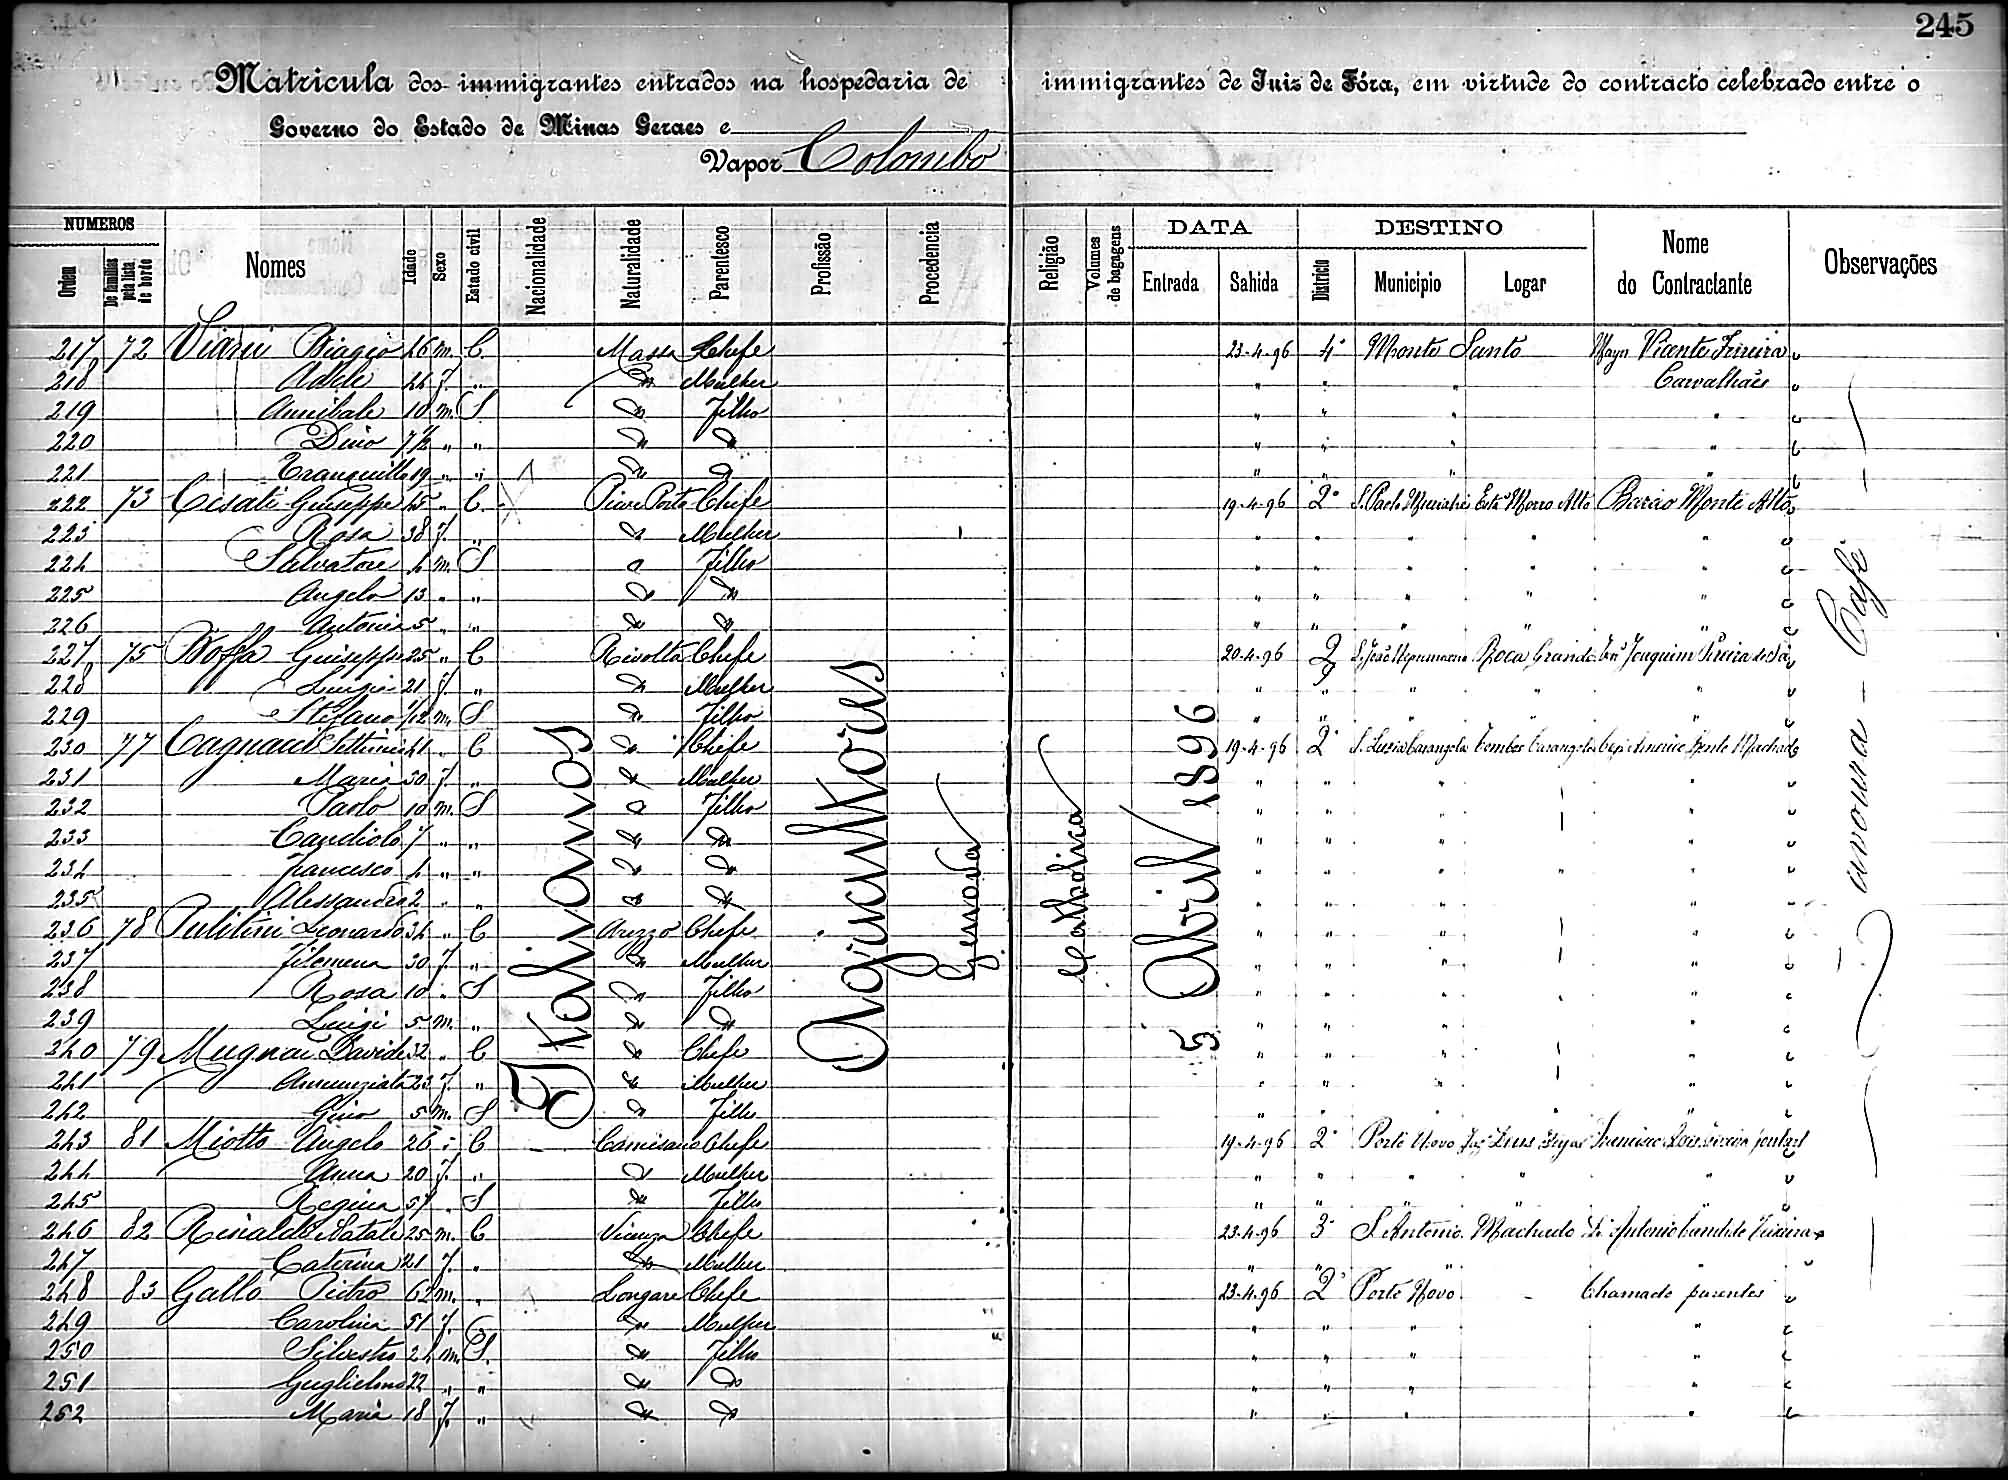 245
Matricula dos immigrantes entrados na hospedaria de immigrantes de Juiz de Fóra, em virtude do contracto celebrado entre o
Governo do Estado de Minas Geraes e
Vapor Colombo
NUMEROS DATA DESTINO
Ordem De familias pela lista de bordo Nomes Idade Sexo Estado civil Nacionalidade Naturalidade Parentesco Profissão Procedencia Religião Volumes de bagagens Entrada Sahida Districto Municipio Logar Nome do Contractante Observações
217 72 Viani Biagio 46 m. C Massa Chefe 23-4-96 4º Monte Santo Vicente Ferreira
218 Adele 44 f. " D" Mulher " " " Carvalhaes
219 Annibale 10 m. S D" Filho " " " "
220 Dino 7 1/2 " " D" D" " " " "
221 Tranquillo 19 " " D" D " " " "
222 73 Cisati Giuseppe 45 " C Pieve Porto Chefe 19-4-96 2º S. Paolo Muriahé Estº Morro Alto Barão Monte Alto
223 Rosa 38 f. " D Mulher " " " " "
224 Salvatore 4 m. S D Filho " " " " "
225 Angelo 13 " " D D" " " " " "
226 Antonia 5 " " D D " " " " "
227 75 Boffa Guiseppe 25 " C Rivolta Chefe 20-4-96 2 S. João Nepumuceno Roca Grande Joaquim Pereira de Sá
228 Luigia 21 f. " D Mulher " " " " "
229 Stefano 1/12 m. S D Filho " " " " "
230 77 Cagnacci Settimio 41 " C D" Chefe 19-4-96 2º S. Luzia Carangola Tombos Carangola Bento Machado
231 Maria 30 f. " D Mulher " " " "
232 Paolo 10 m. S D Filho " " " "
233 Candiolo 7 " " D D " " " "
234 Francesco 4 " " D D " " " " "
235 Alessandro 2 " " D D " " " "
236 78 Pulitini Leonardo 34 " C Arezzo Chefe " " " "
237 Filomena 30 f. " D" Mulher " " " "
238 Rosa 10 " S D" Filho " " " "
239 Luigi 5 m. " D D " " " "
240 79 Mugnai Davide 32 " C D Chefe " " " "
241 Annunziata 23 f. " D Mulher " " " "
242 Gino 5 m. S D Filho " " " " "
243 81 Miotto Angelo 26 " C Camisano Chefe 19-4-96 2º Porto Novo
244 Anna 20 f. " D Mulher " " " " "
245 Regina " S D" Filho " " " " "
246 82 Rinaldo Natale 25 m. C Vicenza Chefe 23-4-96 3º S. Antonio Machado Antonio Candido Teixeira
247 Caterina 21 f. " D" Mulher " " " "
248 83 Gallo Pietro 62 m. " Longare Chefe 23-4-96 2º Porto Novo Chamado parentes
249 Carolina 51 f. C D" Mulher " " " "
250 Silvestro 24 m. S. D" Filho " " " "
251 Guglielmo 22 " " D D " " " "
252 Maria 18 f. " D D " " " "
Italianos
Agricultores
Genova
Catholica
5 Abril 1896
Lavoura - Café